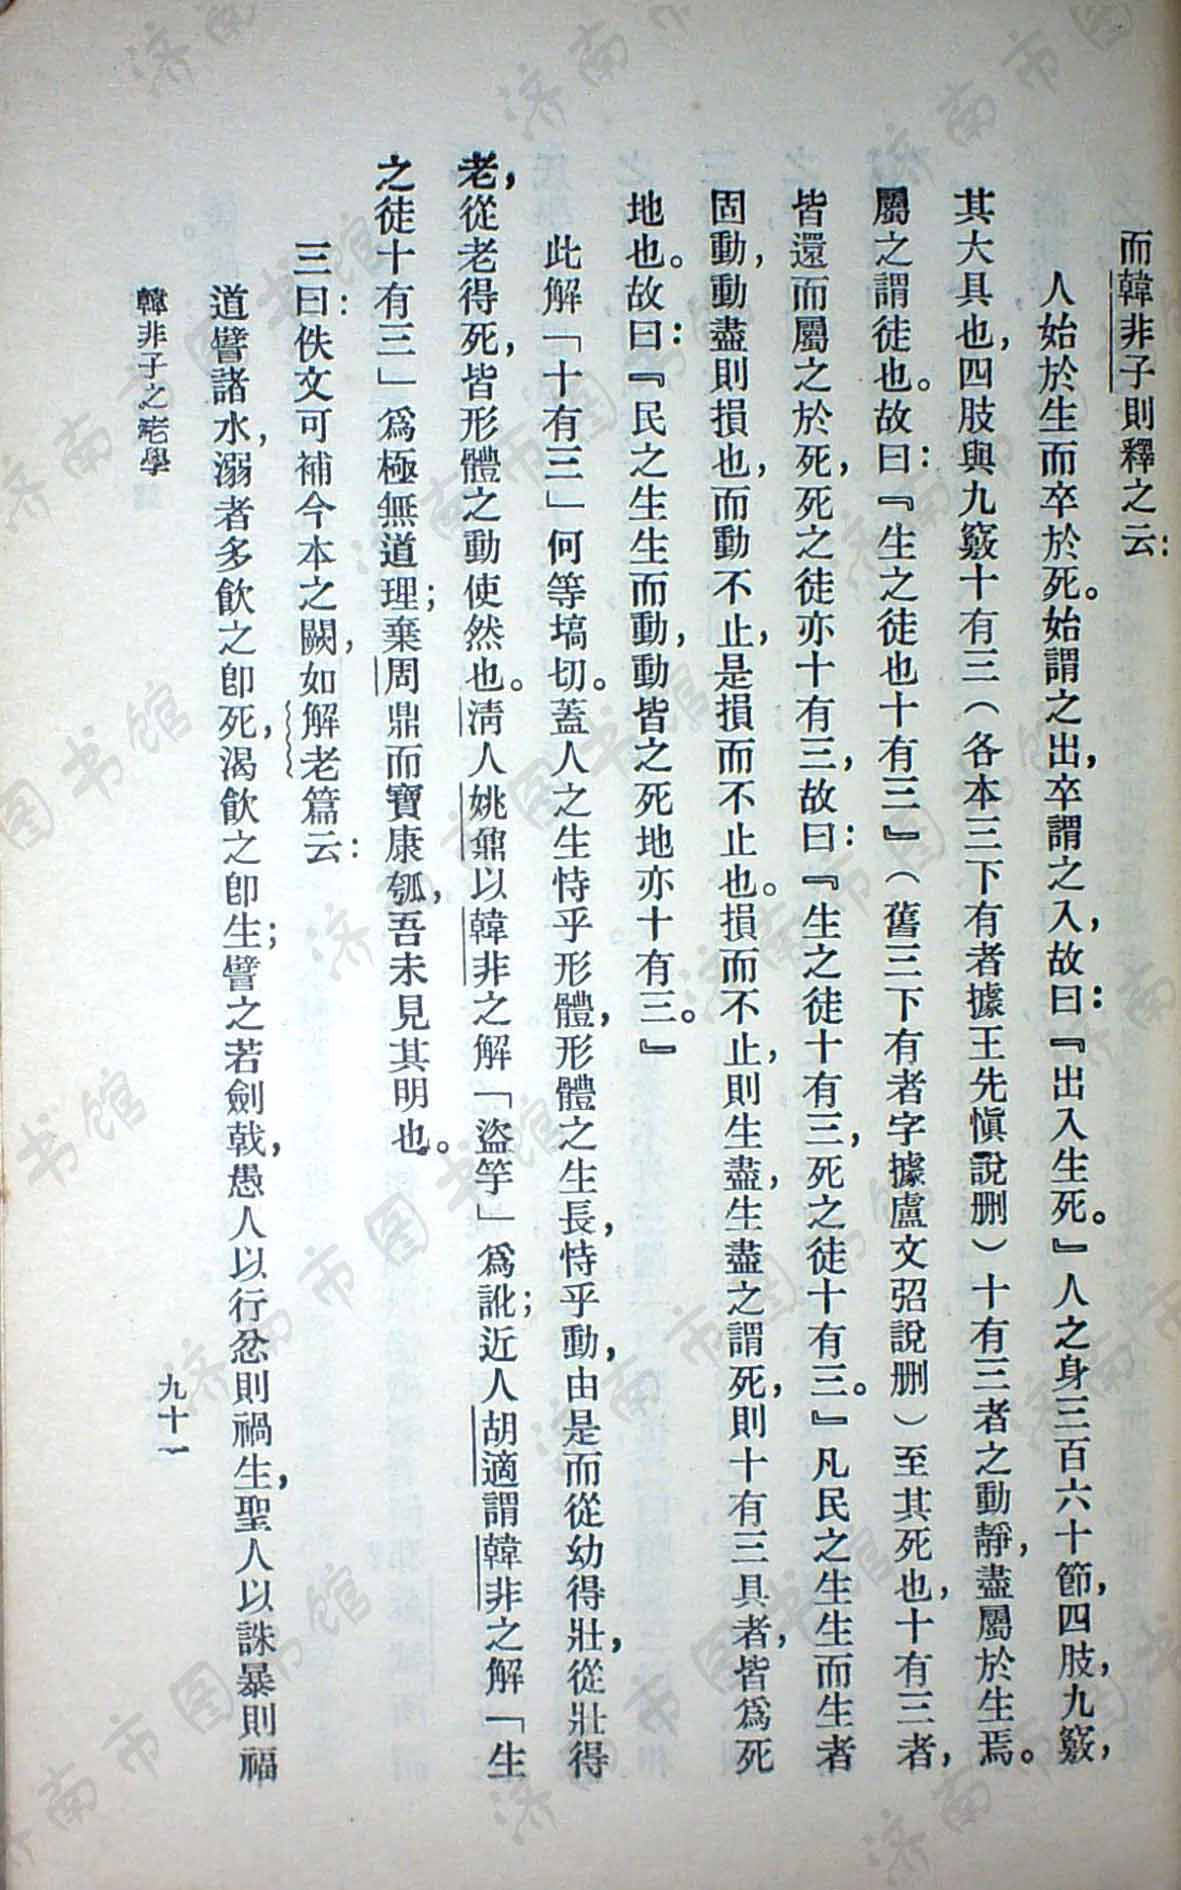 而韓非子則釋之云：
人始於生而卒於死。始謂之出，卒謂之入，故曰：『出入生死。』人之身三百六十節，四肢，九竅，
其大具也，四肢與九竅十有三（各本三下有者據王先慎說刪）十有三者之動靜，盡屬於生焉。
屬之謂徒也。故曰：『生之徒也十有三』（舊三下有者字據盧文弨說刪）至其死也，十有三者，
皆還而屬之於死，死之徒亦十有三，故曰：『生之徒十有三，死之徒十有三。』凡民之生生而生者
固動，動盡則損也，而動不止，是損而不止也。損而不止，則生盡，生盡之謂死，則十有三具者，皆爲死
地也。故曰：『民之生生而動，動皆之死地亦十有三。』
此解「十有三」何等塙切。蓋人之生恃乎形體，形體之生長，恃乎動，由是而從幼得壯，從壯得
老，從老得死，皆形體之動使然也。淸人姚鼐以韓非之解「盜竽」爲訛；近人胡適謂韓非之解「生
之徒十有三」爲極無道理；棄周鼎而寶康瓠，吾未見其明也。
三曰：佚文可補今本之闕，如解老篇云：
道譬諸水，溺者多飲之卽死，渴飲之卽生；譬之若劍戟，愚人以行忿則禍生，聖人以誅暴則福
韓非子之老學
九十一
济南市图书馆